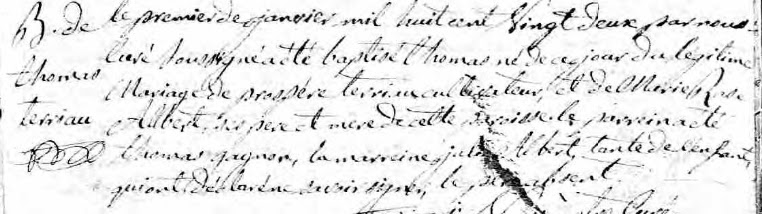 B. de
thomas
terriau
le premier de janvier mil huit cent Vingt deux par nous
Curé Soussigné a été baptisé thomas né de ce jour du légitime
Mariage de prospére terriau cultivateur, et de Marie Rose
Albert, ses pere et mere de cette paroisse le parrein a été
thomas gagnon, la marreine Albert, tante de l'enfant,
qui ont déclaré ne savoir signer, le pere absent.